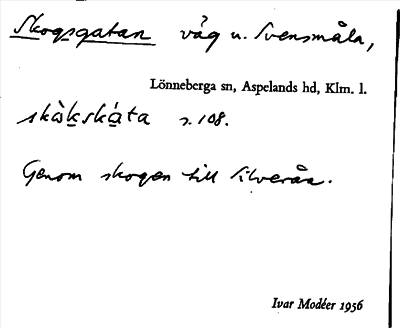 Skogsgatan väg u. Svensmåla,
Lönneberga sn, Aspelands hd, Klm. l.
skὰkskáta s. 108.
Genom skogen till Silverån.
Ivar Modéer 1956